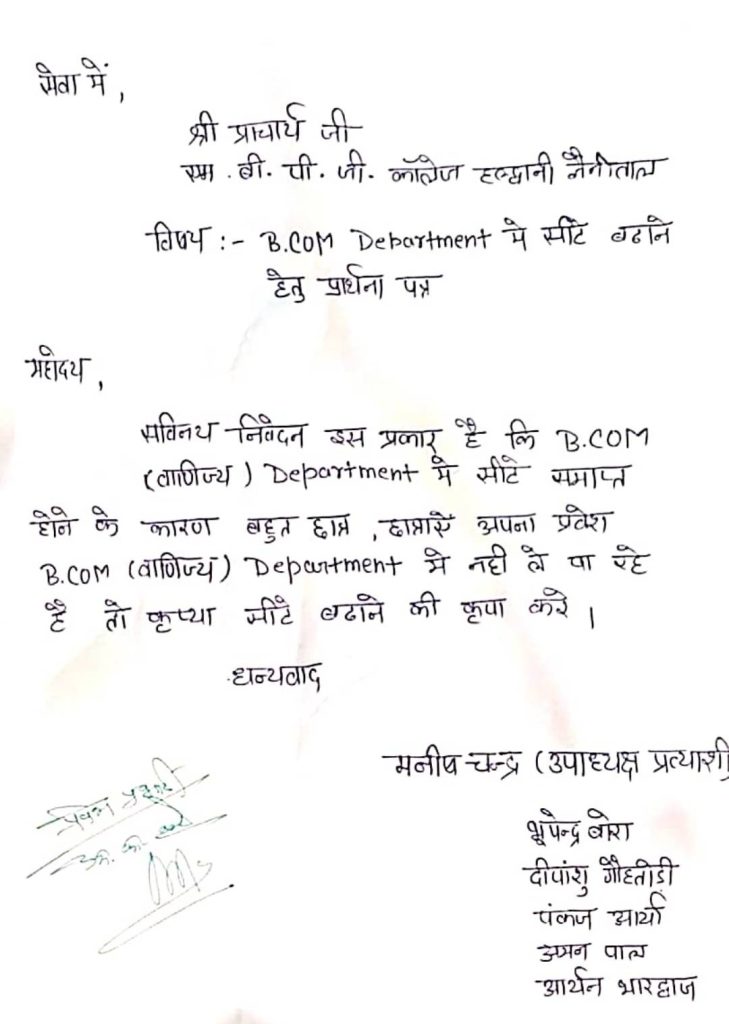 सेवा में,
श्री प्राचार्य जी
एम. बी. पी. जी. कॉलेज हल्द्वानी नैनीताल
विषय :- B.COM Department मे सीटे बढाने
हेतु प्रार्थना पत्र
महोदय,
सविनय निवेदन इस प्रकार है कि B.COM
(वाणिज्य) Department मे सीटे समाप्त
होने के कारण बहुत छात्र, छात्राऐं अपना प्रवेश
B.COM (वाणिज्य) Department मे नही ले पा रहे
है तो कृप्या सीटे बढाने की कृपा करे।
धन्यवाद
मनीष चन्द्र (उपाध्यक्ष प्रत्याशी)
भूपेन्द्र बोरा
दीपांशु
पंकज आर्या
अमन पाल
आर्यन भारद्वाज